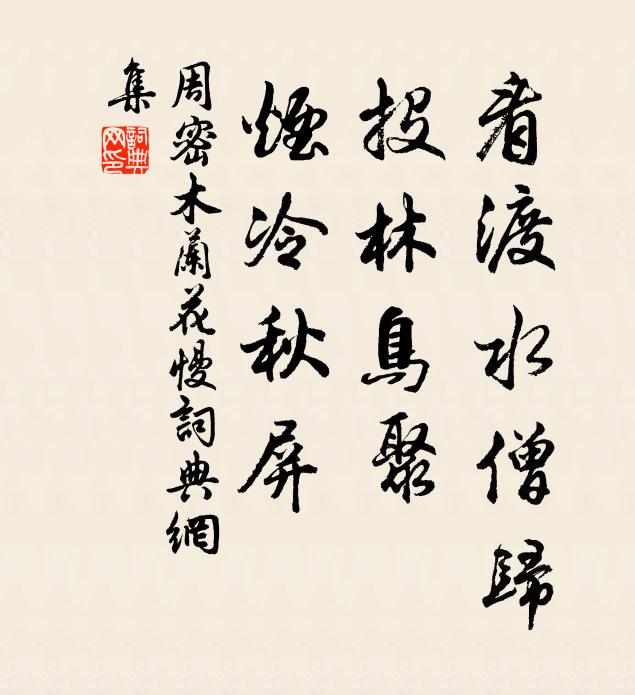 看渡水僧歸
投林鳥聚
煙冷秋屏
周密木蘭花慢詞典網
集
詞典網印